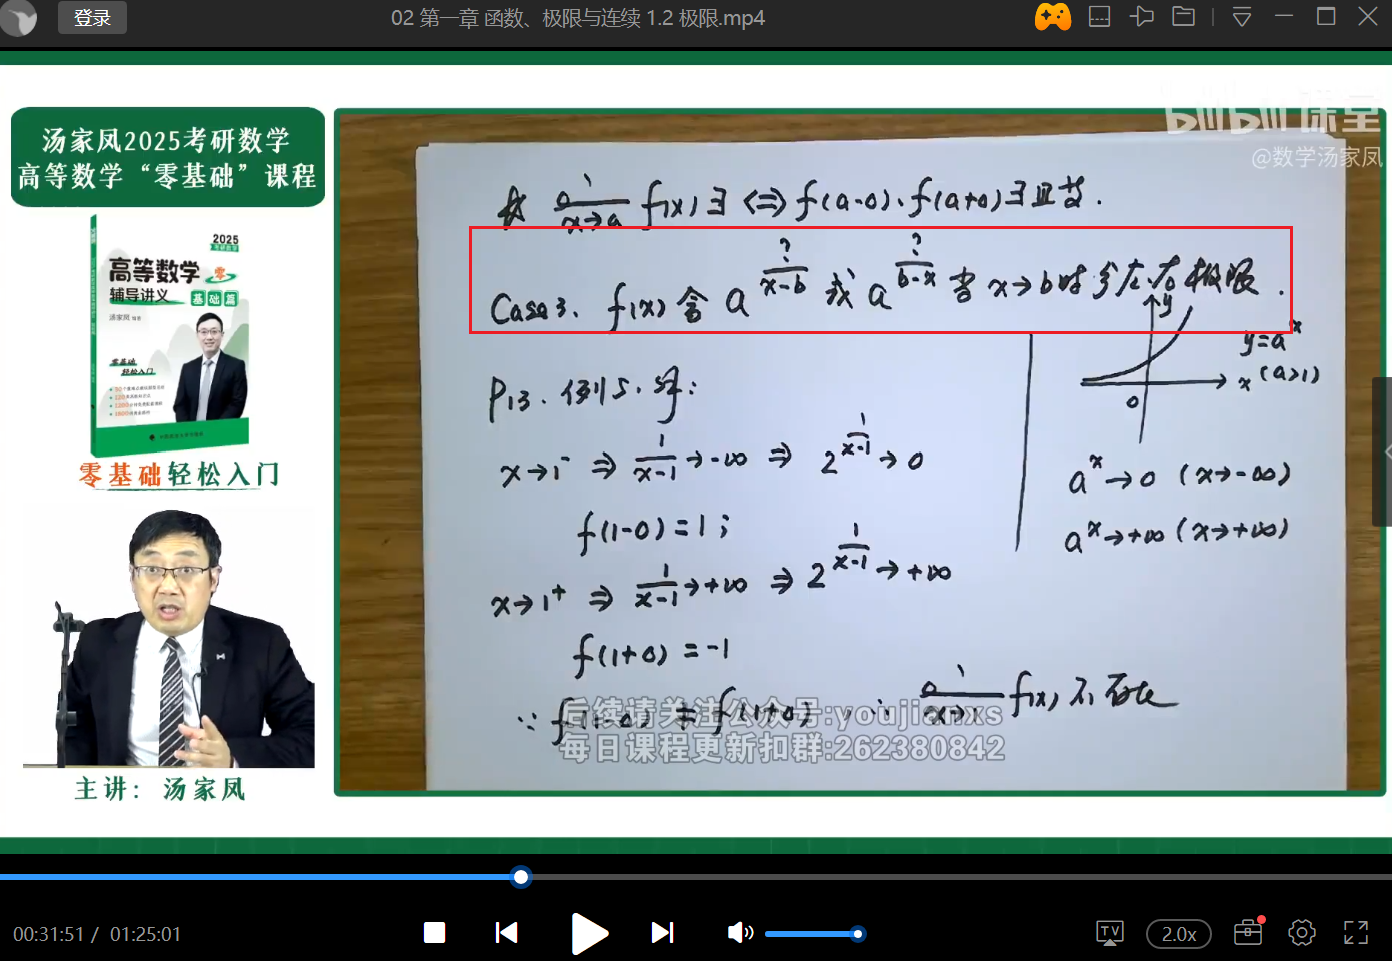 登录
02 第一章 函数、极限与连续 1.2 极限.mp4
汤家凤2025考研数学
高等数学“零基础”课程
2025
高等数学 零
辅导讲义 基础篇
汤家凤
零基础
轻松入门
零基础轻松入门
主讲：汤家凤
bilibili课堂
@数学汤家凤
lim x→a f(x)∃ <=> f(a-0)、f(a+0)∃且等.
Case3、f(x)含 a^(?/(x-b)) 或 a^(?/(b-x)) 当 x→b时分左右极限.
y
y=a^x
x (a>1)
0
P13. 例5. 解:
x→1⁻ ⇒ 1/(x-1)→-∞ ⇒ 2^(1/(x-1))→0
a^x→0 (x→-∞)
f(1-0)=1;
a^x→+∞(x→+∞)
x→1⁺ ⇒ 1/(x-1)→+∞ ⇒ 2^(1/(x-1))→+∞
f(1+0)=-1
∵ f(1-0)≠f(1+0) ∴ lim x→1 f(x)不存在
后续请关注公众号:youjiaxxs
每日课程更新扣群:262380842
00:31:51 / 01:25:01
TV
2.0x